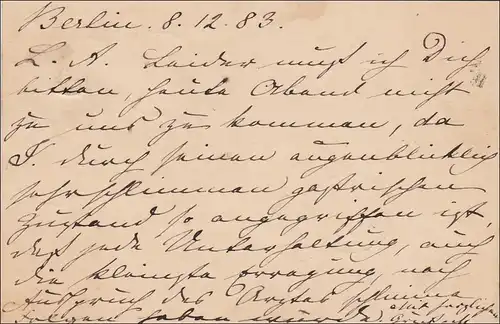 Berlin. 8. 12. 83.
L. A. Leider muß ich Dich
bitten, heute Abend nicht
zu uns zu kommen, da
I. durch seinen augenblicklich
sehr schlimmen gastrischen
Zustand so angegriffen ist,
daß jede Unterhaltung, auch
die kleinste Erregung, nach
Ausspruch des Arztes schlimme
Folgen haben würde.
Mit herzlichem
Gruß